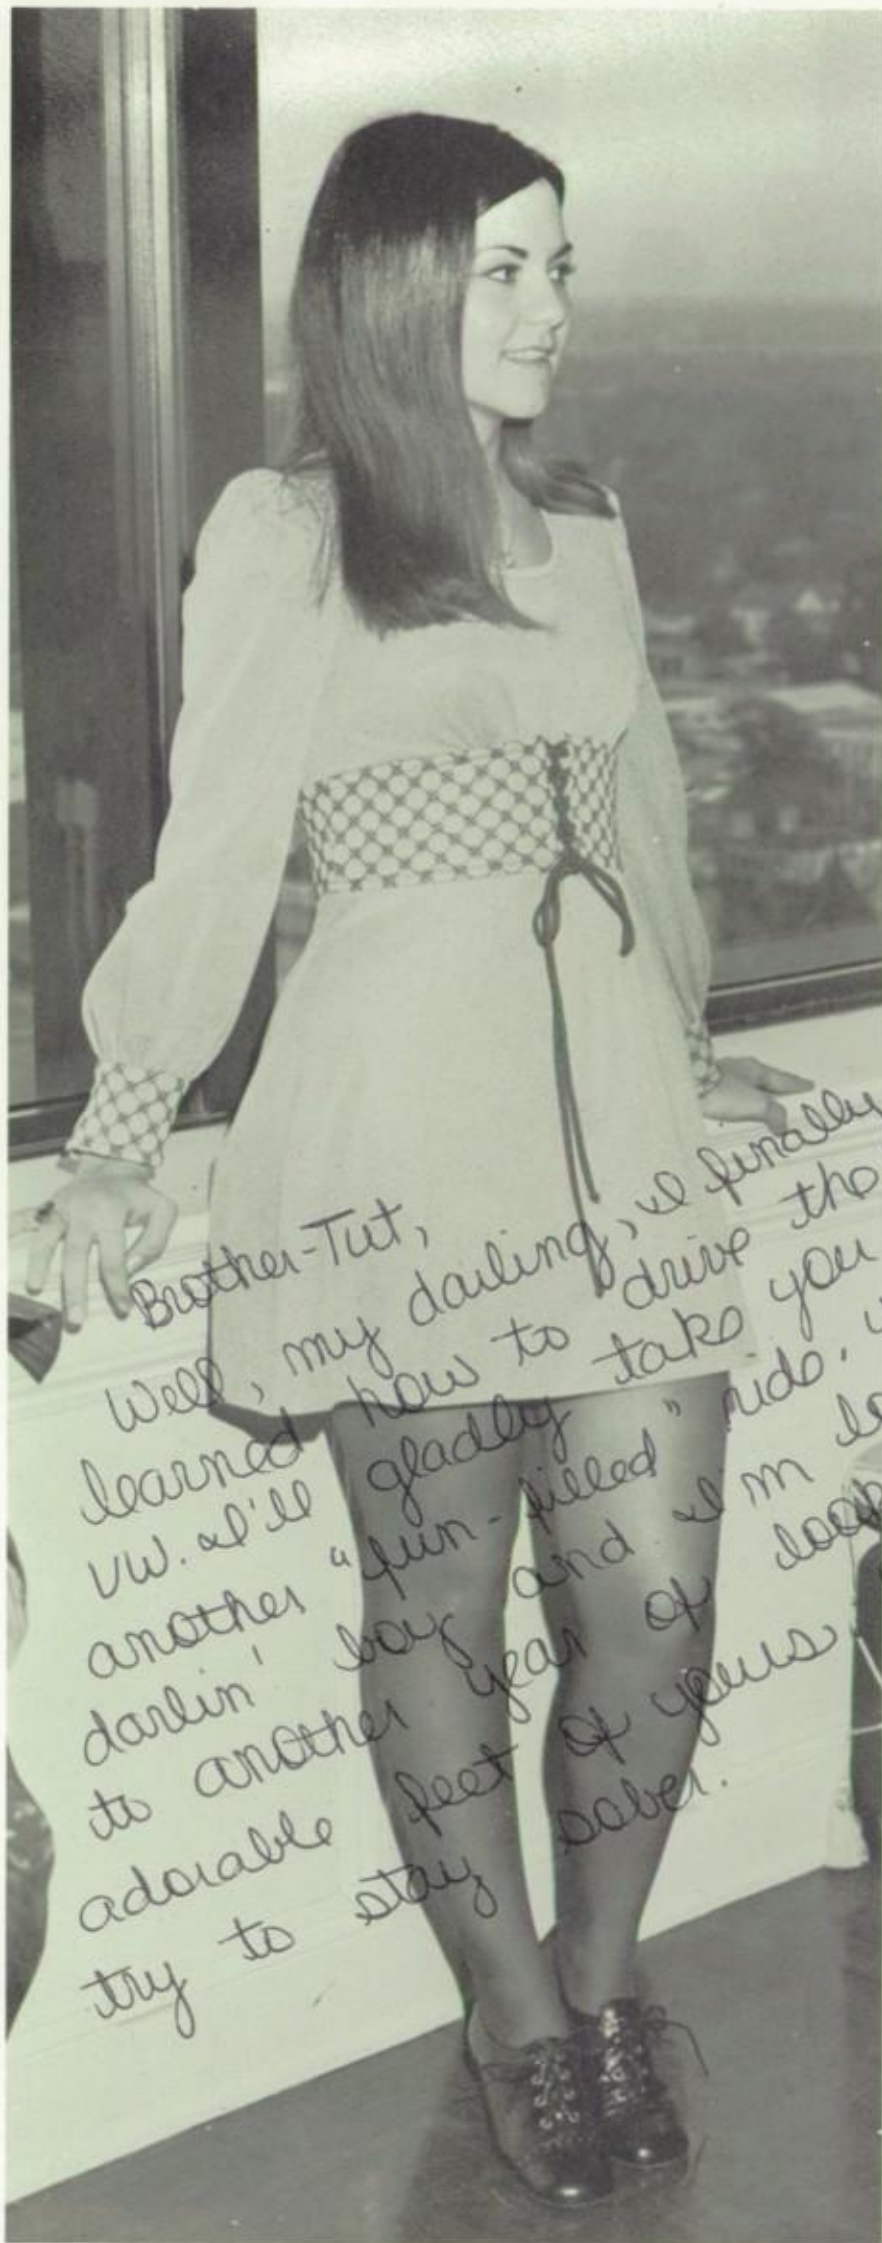 Brother-Tut,
Well, my darling, I finally
learned how to drive the
VW. I'll gladly take you
another "fun-filled" ride,
darlin' boy and I'm
to another year of
adorable feet of yours
try to stay sober.